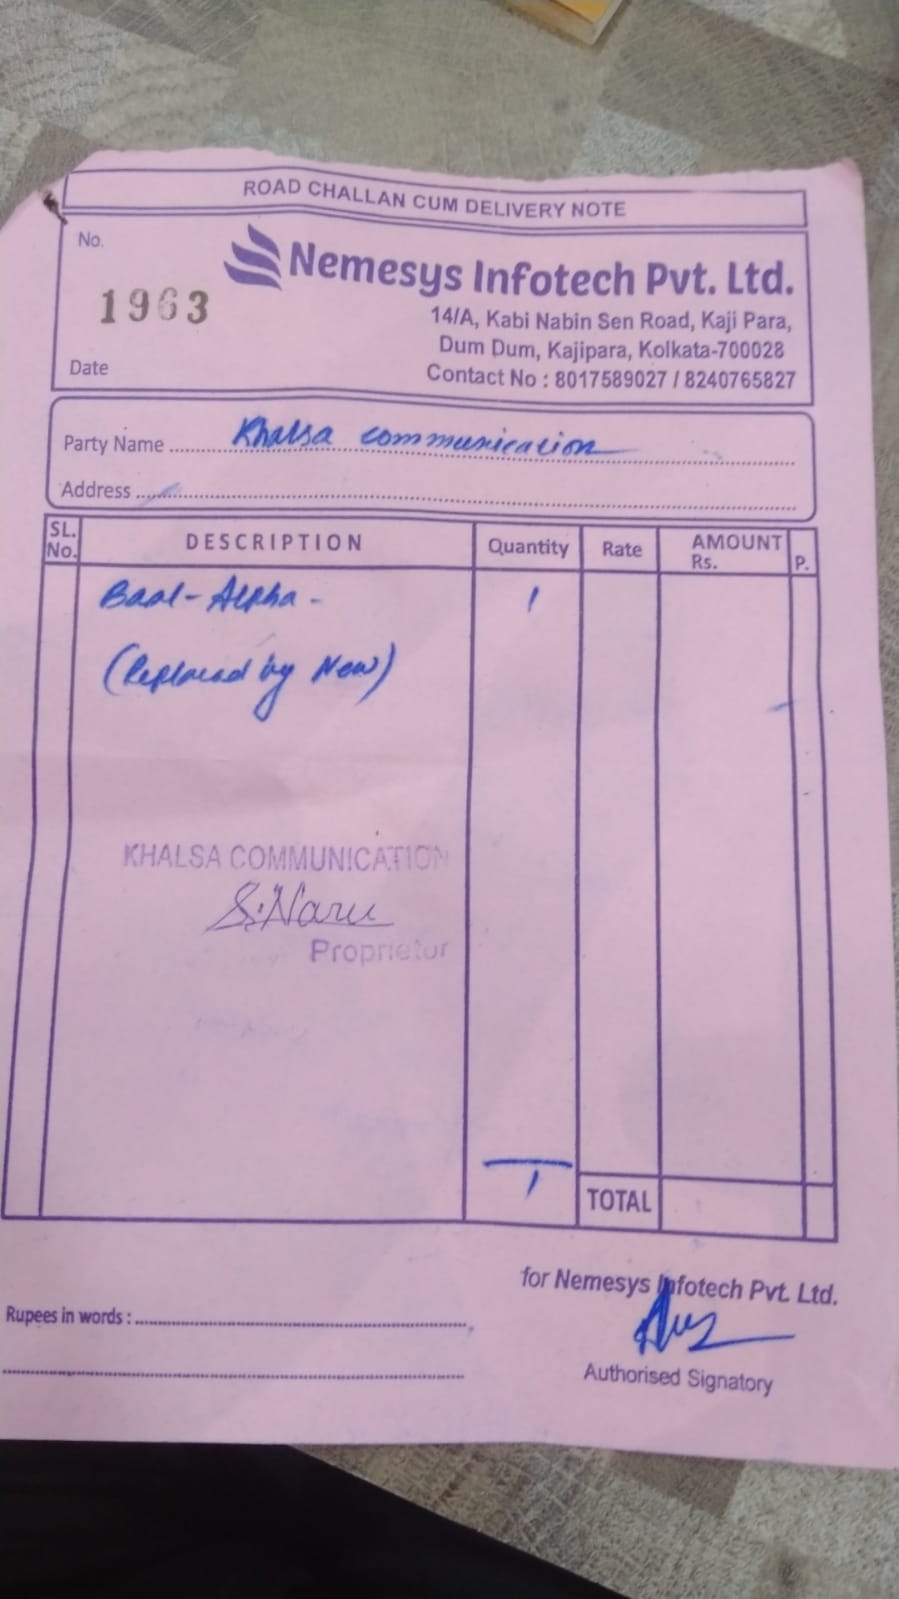 ROAD CHALLAN CUM DELIVERY NOTE
No.
1963
Nemesys Infotech Pvt. Ltd.
14/A, Kabi Nabin Sen Road, Kaji Para,
Dum Dum, Kajipara, Kolkata-700028
Contact No : 8017589027 / 8240765827
Date
Party Name Khalsa communication
Address
SL. No. DESCRIPTION Quantity Rate AMOUNT Rs. P.
Alpha - 1
(Replaced by New)
KHALSA COMMUNICATION
Proprietor
1 TOTAL
for Nemesys Infotech Pvt. Ltd.
Rupees in words :
Authorised Signatory